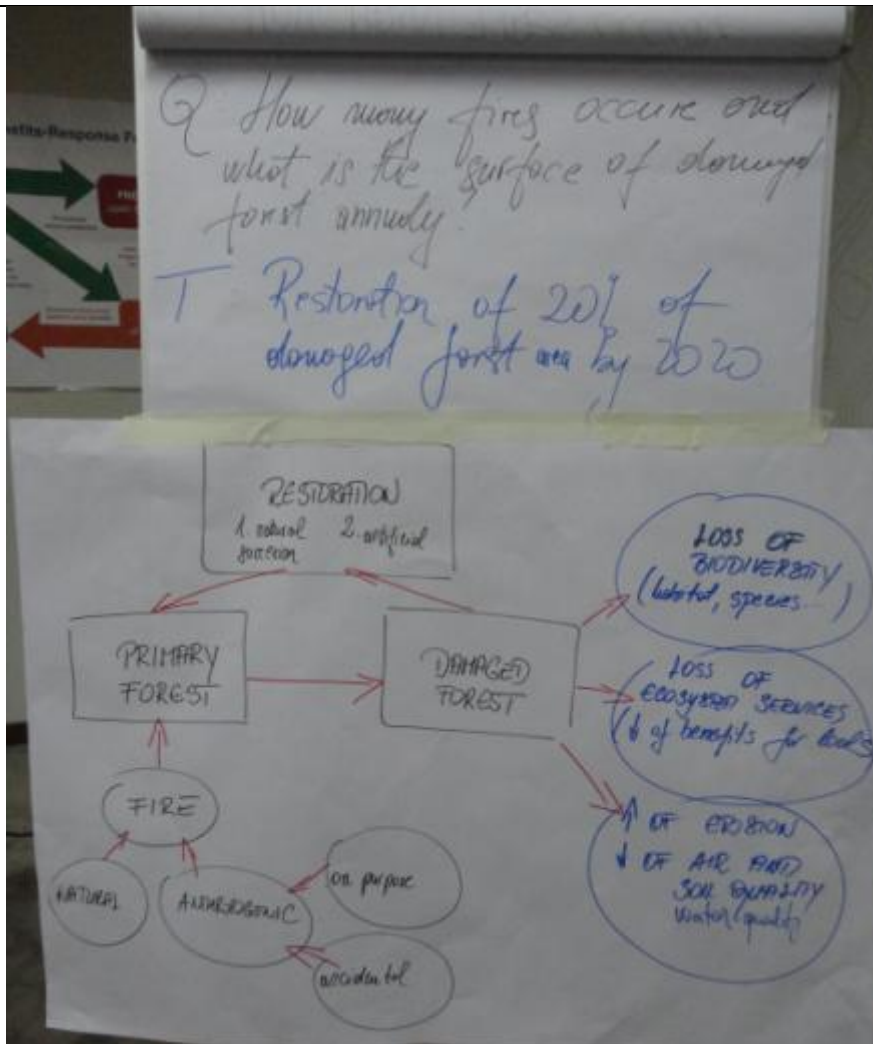 Q How many fires occure and
what is the surface of damaged
forst annualy?
T Restoration of 20% of
damaged forst area by 2020
RESTORATION
1. natural 2. artificial
PRIMARY
FOREST
DAMAGED
FOREST
FIRE
NATURAL
on purpose
accidental
LOSS OF
BIODIVERSITY
(habitat, species...)
LOSS OF
ECOSYSTEM SERVICES
(↓ of benefits for locals
↑ OF EROSION
↓ OF AIR AND
SOIL QUALITY
water quality